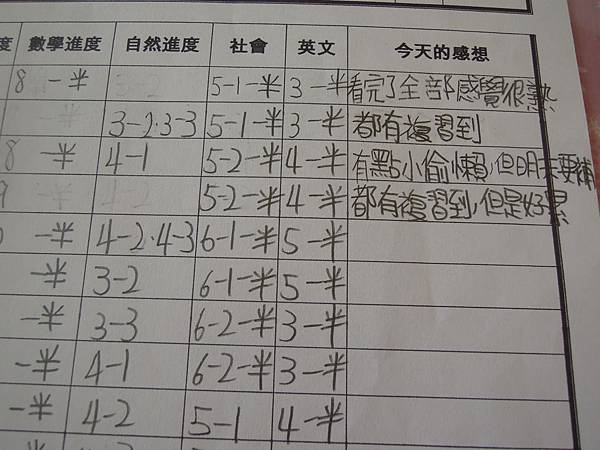 度 數學進度 自然進度 社會 英文 今天的感想
8 一半 5-1一半 3一半 看完了全部感覺很熟
3-2、3-3 5-1一半 3一半 都有複習到
8 一半 4-1 5-2一半 4一半 有點小偷懶，但明天要補
9 5-2一半 4一半 都有複習到，但是好累
一半 4-2、4-3 6-1一半 5一半
一半 3-2 6-1一半 5一半
一半 3-3 6-2一半 3一半
一半 4-1 6-2一半 3一半
一半 4-2 5-1 4一半